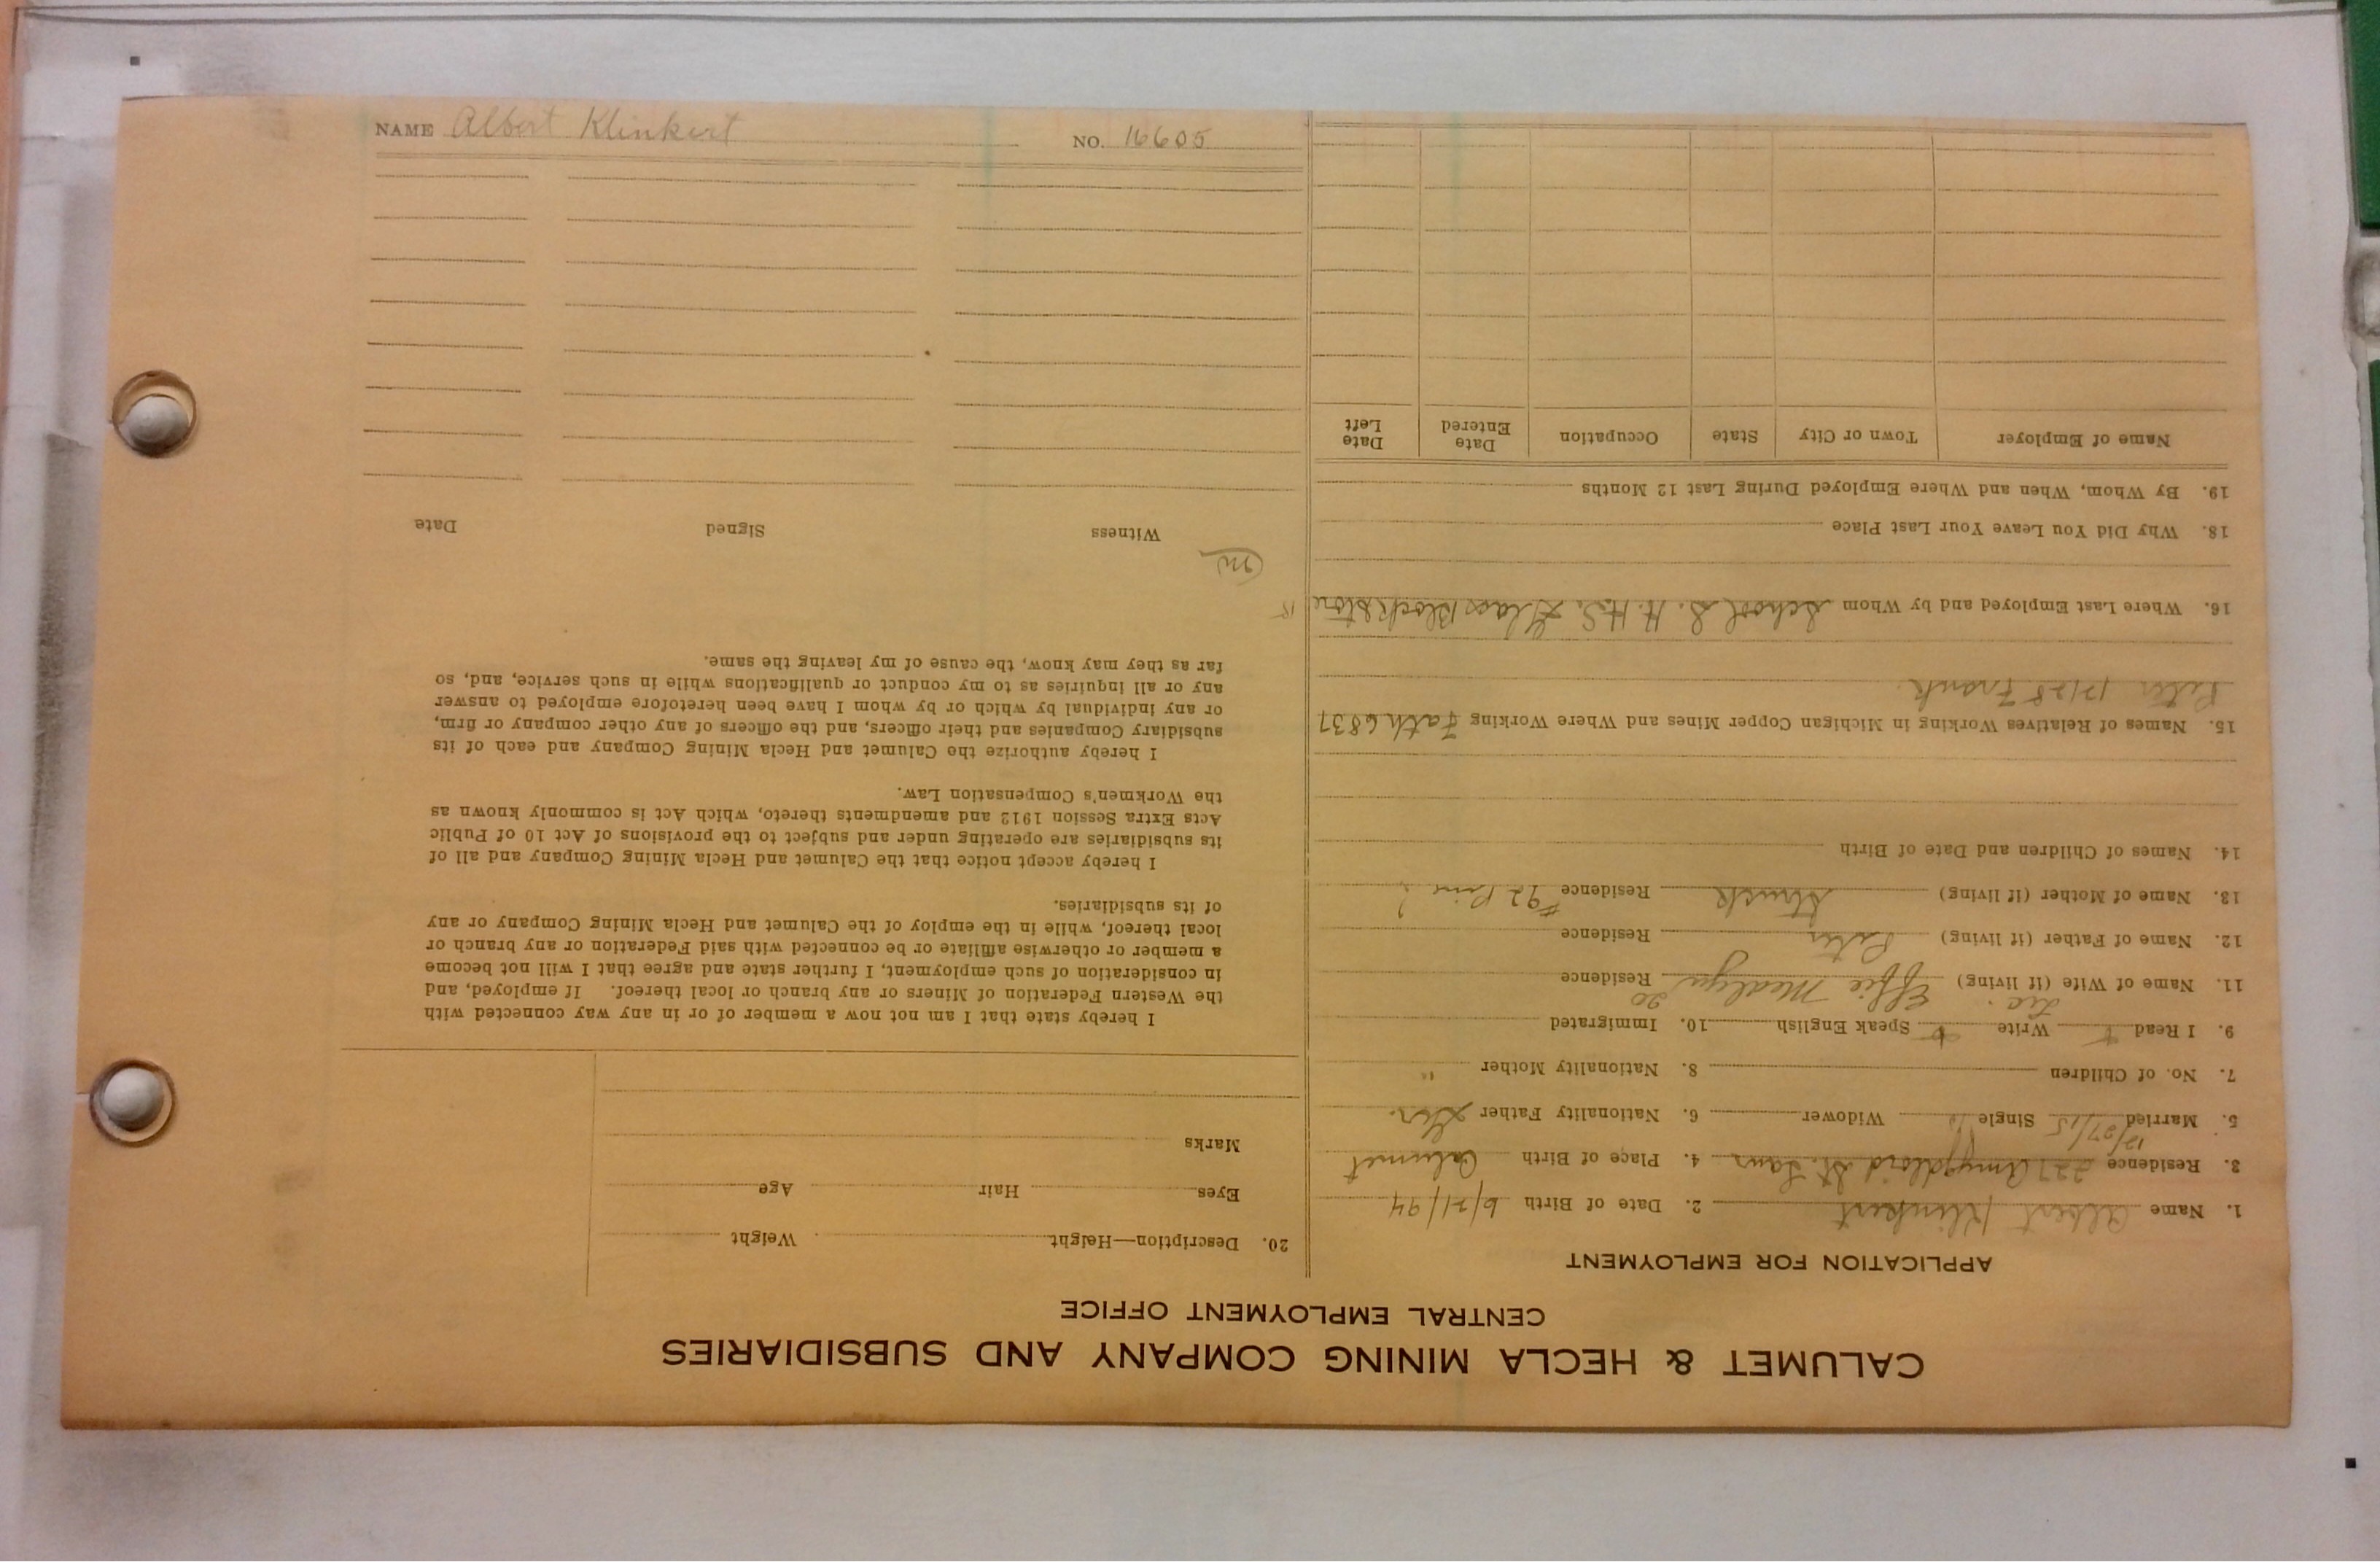 CALUMET & HECLA MINING COMPANY AND SUBSIDIARIES
CENTRAL EMPLOYMENT OFFICE
APPLICATION FOR EMPLOYMENT
1. Name Albert Klinkert 2. Date of Birth 6/21/94
3. Residence 227 Amygdloid St. Laur 4. Place of Birth Calumet
12/27/15
5. Married Single Widower 6. Nationality Father Ger.
7. No. of Children 8. Nationality Mother "
9. I Read Write Speak English 10. Immigrated
11. Name of Wife (if living) Effie Residence
12. Name of Father (if living) Peter Residence
13. Name of Mother (if living) Residence #92
14. Names of Children and Date of Birth
15. Names of Relatives Working in Michigan Copper Mines and Where Working Fath 6837
Peter Frank
16. Where Last Employed and by Whom School Glass Block Store
18. Why Did You Leave Your Last Place
19. By Whom, When and Where Employed During Last 12 Months
Name of Employer Town or City State Occupation Date Entered Date Left
20. Description—Height Weight
Eyes Hair Age
Marks
I hereby state that I am not now a member of or in any way connected with
the Western Federation of Miners or any branch or local thereof. If employed, and
in consideration of such employment, I further state and agree that I will not become
a member or otherwise affiliate or be connected with said Federation or any branch or
local thereof, while in the employ of the Calumet and Hecla Mining Company or any
of its subsidiaries.
I hereby accept notice that the Calumet and Hecla Mining Company and all of
its subsidiaries are operating under and subject to the provisions of Act 10 of Public
Acts Extra Session 1912 and amendments thereto, which Act is commonly known as
the Workmen's Compensation Law.
I hereby authorize the Calumet and Hecla Mining Company and each of its
subsidiary Companies and their officers, and the officers of any other company or firm,
or any individual by which or by whom I have been heretofore employed to answer
any or all inquiries as to my conduct or qualifications while in such service, and, so
far as they may know, the cause of my leaving the same.
Witness Signed Date
NAME Albert Klinkert NO. 16605